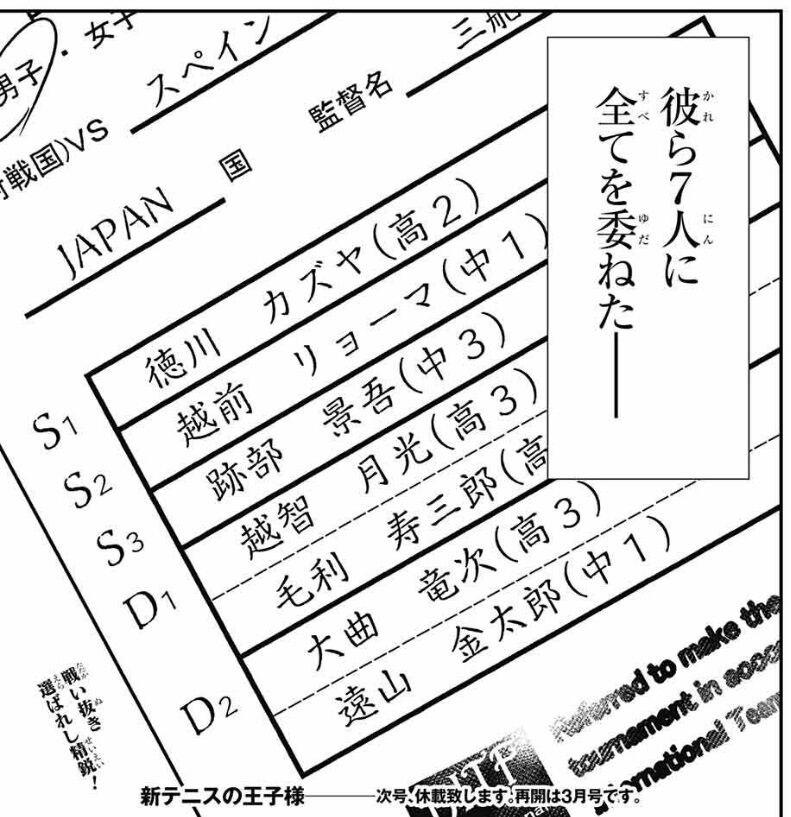 彼ら7人に
全てを委ねた――
男子・女子
対戦国)VS スペイン
JAPAN 国 監督名 三船
S1 徳川 カズヤ(高2)
S2 越前 リョーマ(中1)
S3 跡部 景吾(中3)
D1 越智 月光(高3)
毛利 寿三郎(高
D2 大曲 竜次(高3)
遠山 金太郎(中1)
戦い抜き
選ばれし精鋭!
Referred to make the
tournament in acco
International Team
新テニスの王子様――次号、休載致します。再開は3月号です。